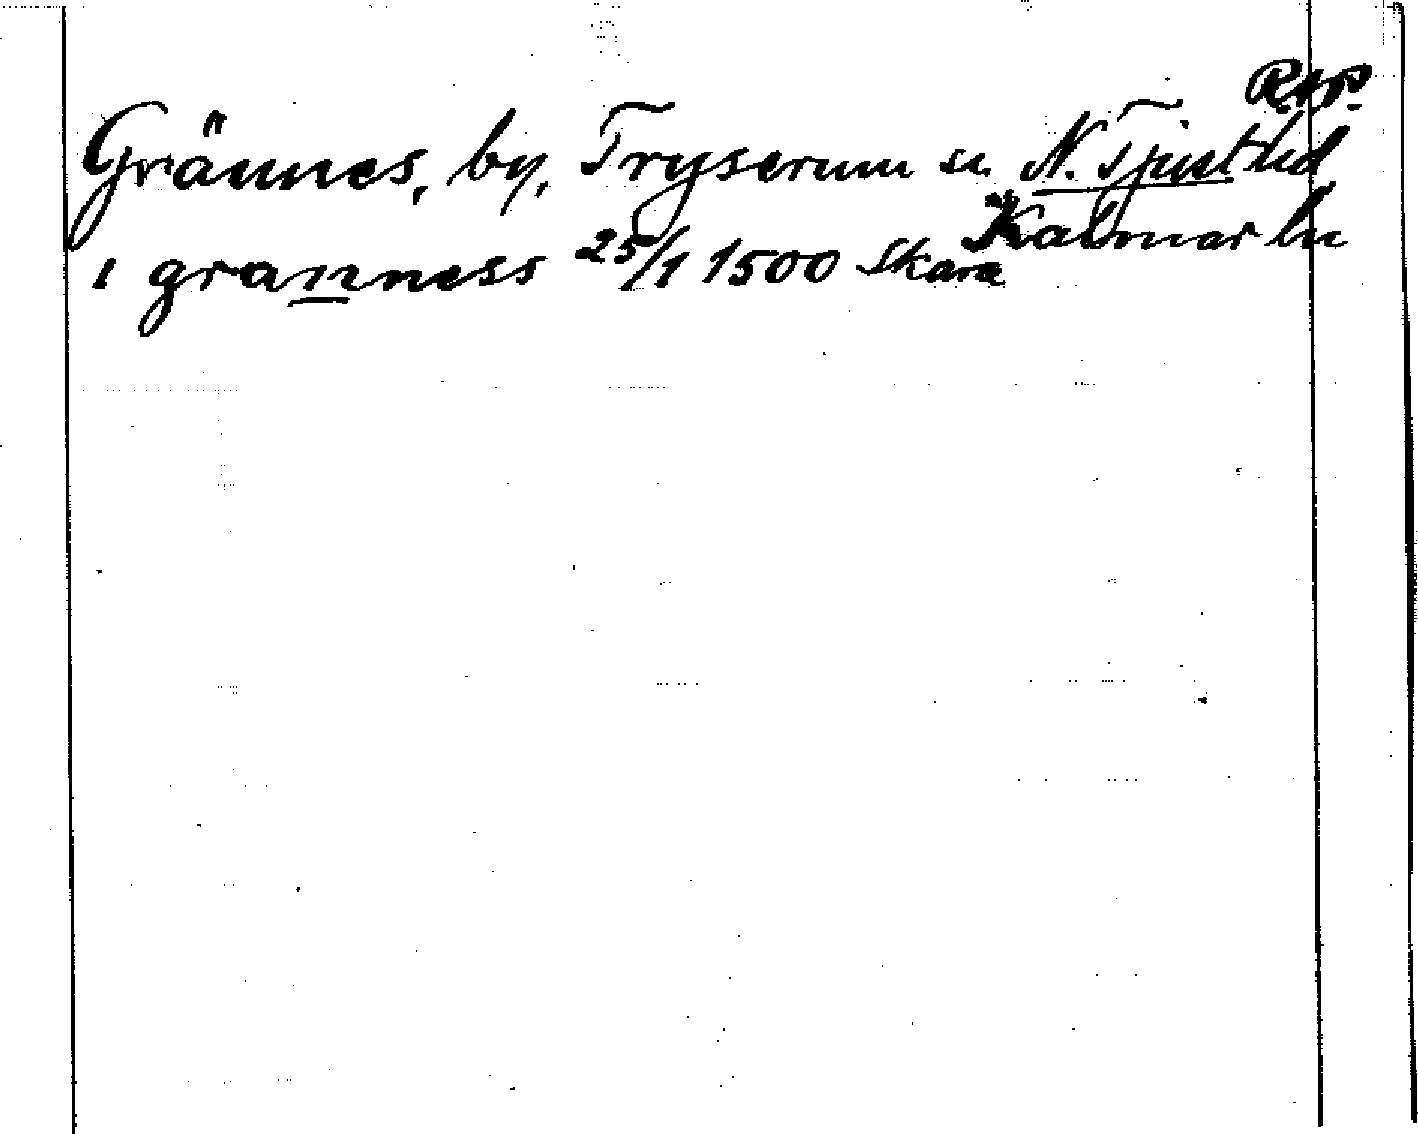 Rep.
Grännes, by, Tryserum sn N. Tjust hd
Kalmar ln
i granness 25/1 1500 Skara